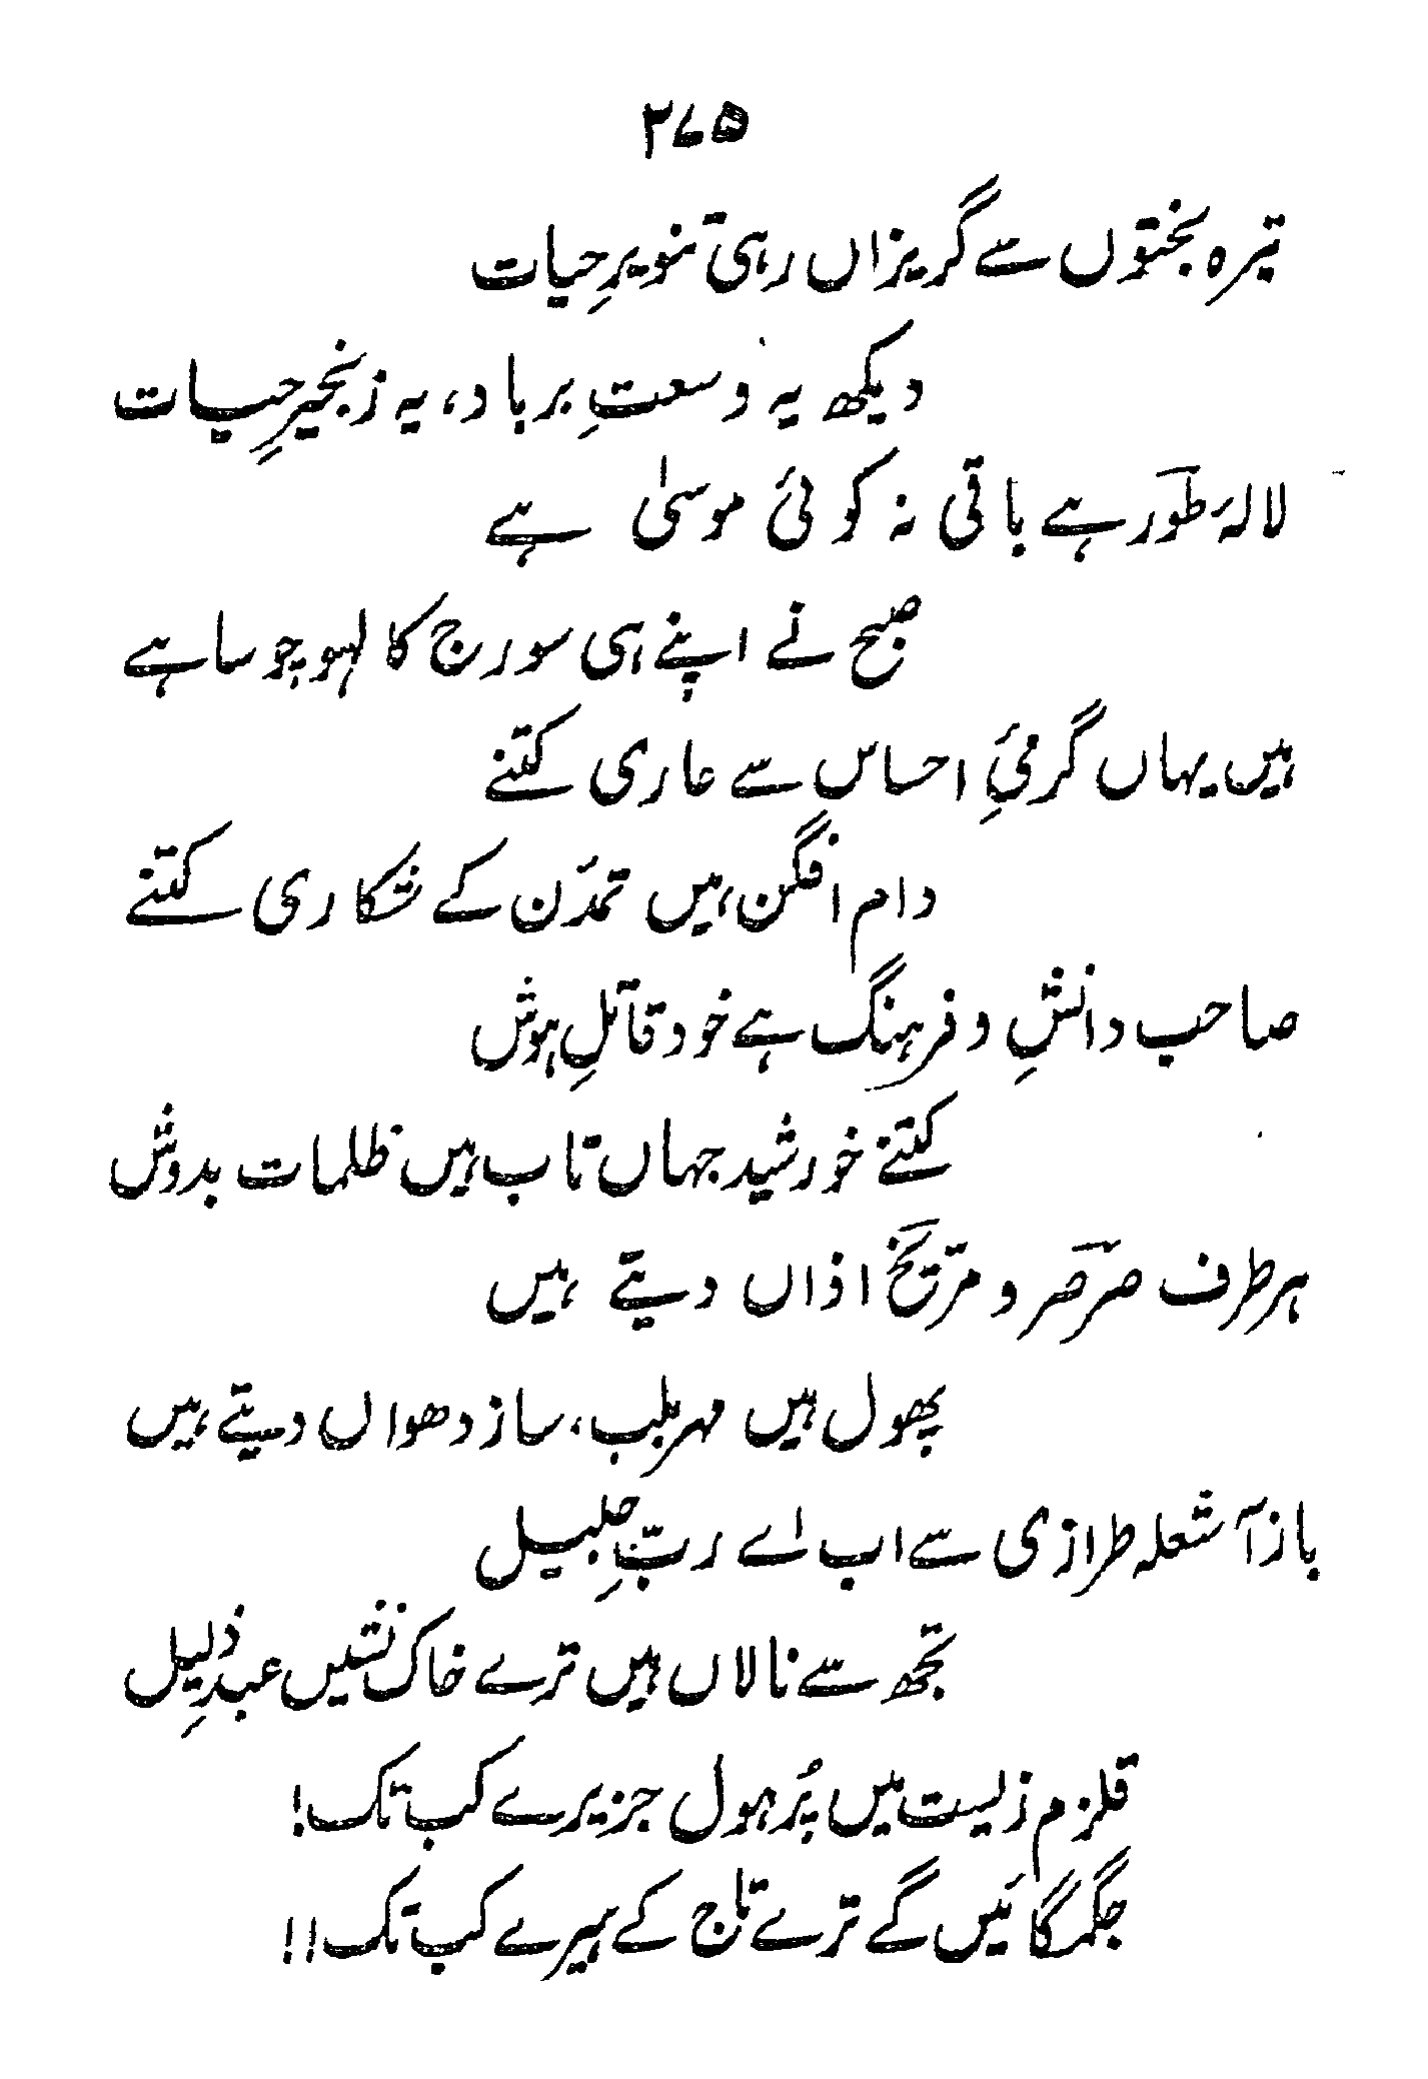 ۲۷۵
تیرہ بختوں سے گریزاں رہی تنویرِ حیات
دیکھ یہ وسعتِ برباد، یہ زنجیرِ حیات
لالۂ طور ہے باقی نہ کوئی موسیٰ ہے
صبح نے اپنے ہی سورج کا لہو چوسا ہے
ہیں یہاں گرمیِٔ احساس سے عاری کتنے
دام افگن ہیں تمدّن کے شکاری کتنے
صاحب دانشِ و فرہنگ ہے خود قاتلِ ہوش
کتنے خورشید جہاں تاب ہیں ظلمات بدوش
ہر طرف صرصر و مرّیخ اذاں دیتے ہیں
پھول ہیں مہر بلب، ساز دھواں دیتے ہیں
باز آ شعلہ طرازی سے اب اے ربِّ جلیل
تجھ سے نالاں ہیں ترے خاک نشیں عبدِ ذلیل
قلزم زیست میں پُرہول جزیرے کب تک!
جگمگائیں گے ترے تاج کے ہیرے کب تک!!